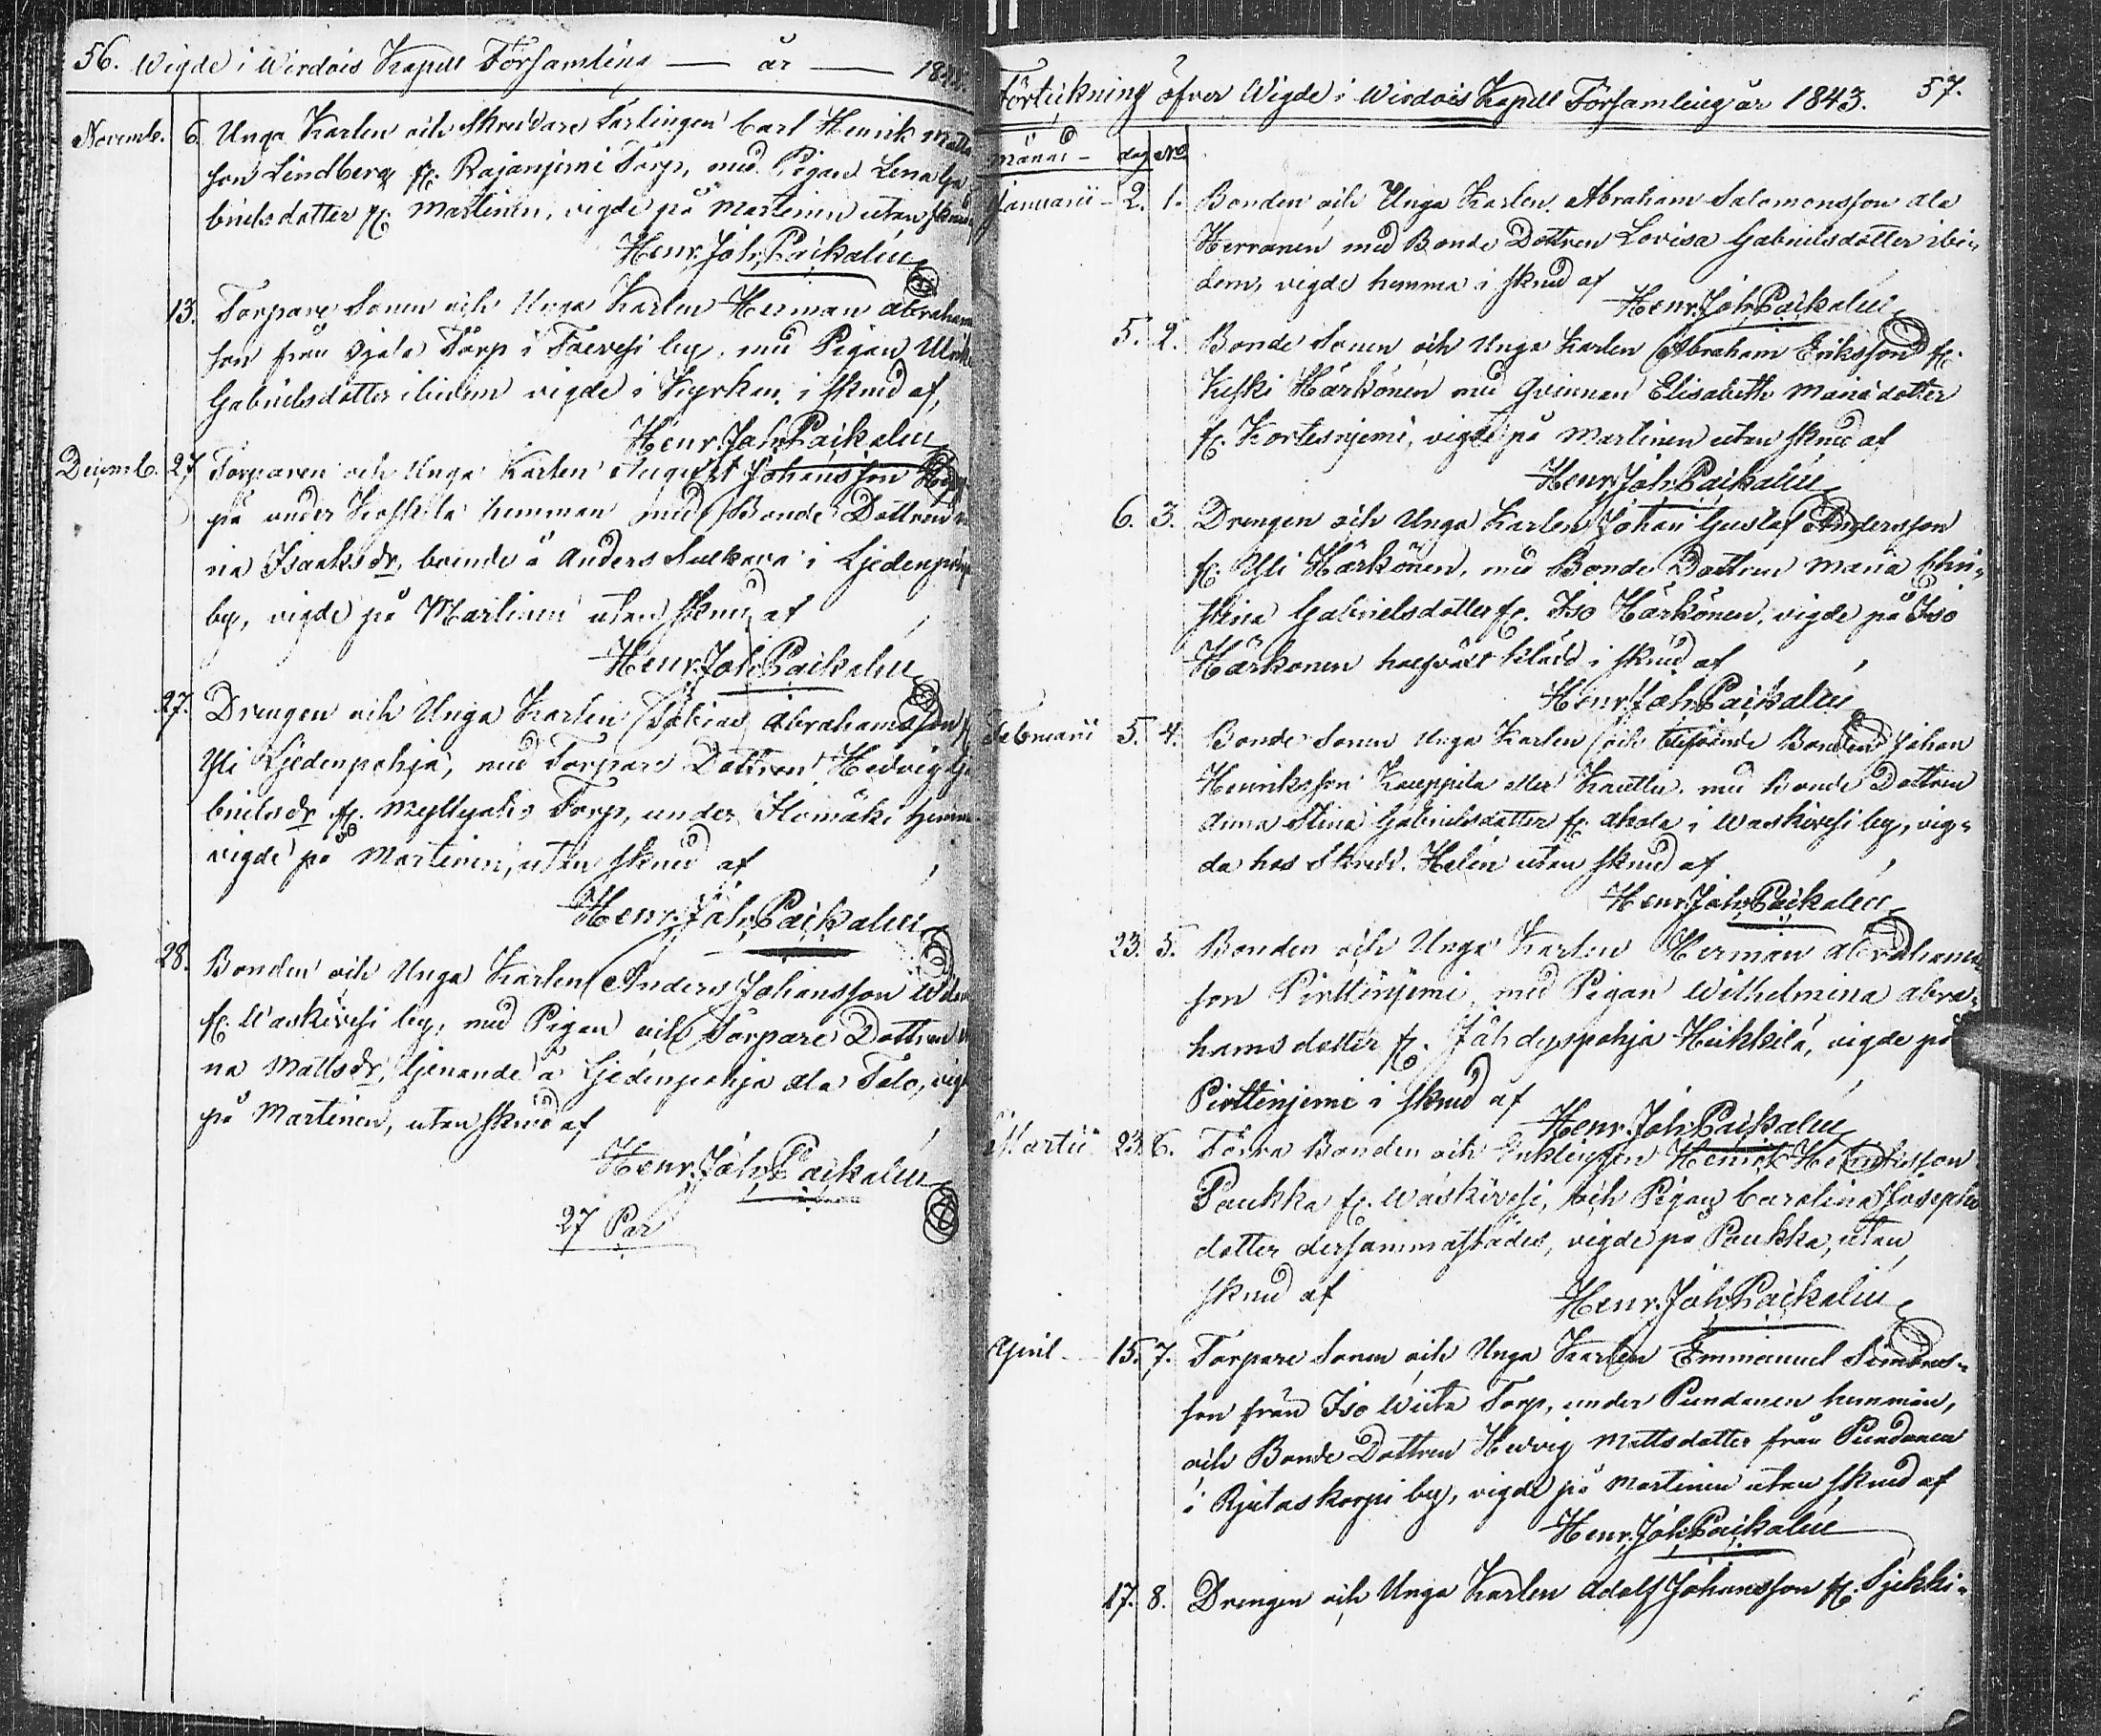 56. Wigde i Wirdois Kapell Församling — år — 184
Novemb. 6. Unga Karlen och Skreddare Lärlingen Carl Henrik Matts
son Lindberg fr. Rajanjemi Torp, med Pigan Lena Ga
brielsdotter fr. Martinen, vigde på Martinen utan skrud
Henr. Joh. Paikalén
13. Torpare Sonen och Unga Karlen Herman Abraham
son från Ojala Torp i Toivesi by, med Pigan Ulrika
Gabrielsdotter ibidem vigde i Kyrkan i skrud af,
Henr. Joh. Paikalén
Decemb. 27 Torparen och Unga Karlen August Johansson
på under Koskela hemman med Bonde Dottren
na Isaksdr, boende å Anders Sulkava i Ljedenpohja
by, vigde på Martinen utan skrud af
Henr. Joh. Paikalén
27. Drengen och Unga Karlen Tobias Abrahamsson fr
Yli Ljedenpohja, med Torpare Dottren Hedvig Ga
brielsdr fr. Myllyaho Torp, under Ilomäki hemm
vigde på Martinen, utan skrud af
Henr. Joh. Paikalén
28. Bonden och Unga Karlen Anders Johansson
fr. Waskivesi by, med Pigan och Torpare Dottren
na Mattsdr, tjenande å Ljedenpohja ala Talo, vigd
på Martinen, utan skrud af
Henr. Joh. Paikalén
27 Par
Förtekning öfver Wigde i Wirdois Kapell Församling år 1843. 57.
Månad - dag No
Januarii - 2. 1. Bonden och Unga Karlen Abraham Salomonsson ala
Herranen med Bonde Dottren Lovisa Gabrielsdotter ibi-
dem, vigde hemma i skrud af
Henr. Joh. Paikalén
5. 2. Bonde Sonen och Unga Karlen Abraham Eriksson fr.
Keski Härkönen med Qvinnan Elisabeth Mariadotter
fr. Kortesnjemi, vigde på Martinen utan skrud af
Henr. Joh. Paikalén
6. 3. Drengen och Unga Karlen Johan Gustaf Andersson
fr. Yli Härkönen, med Bonde Dottren Maria Chri-
stina Gabrielsdotter fr. Iso Härkönen, vigde på Iso
Härkönen klädd i skrud af
Henr. Joh. Paikalén
Februarii 5. 4. Bonde Sonen Unga Karlen och Bonden Johan
Henriksson Kauppila eller Kauttu, med Bonde Dottren
Anna Stina Gabrielsdotter fr. Ahola i Waskivesi by, vig-
da hos Skredd. Helén utan skrud af
Henr. Joh. Paikalén
23. 5. Bonden och Unga Karlen Herman Abrahams
son Pirttinjemi, med Pigan Wilhelmina Abra-
hamsdotter fr. Jähdyspohja Heikkilä, vigde på
Pirttinjemi i skrud af
Henr. Joh. Paikalén
Martii 23. 6. Förra Bonden och Enklingen Henrik Henriksson
Paukka fr. Waskivesi, och Pigan Carolina Josephs
dotter dersammastädes, vigde på Paukka, utan
skrud af
Henr. Joh. Paikalén
April 15. 7. Torpare Sonen och Unga Karlen Emmanuel Simons-
son från Iso Wiita Torp, under Pundanen hemman,
och Bonde Dottren Hedvig Mattsdotter från Pundanen
i Rjutaskorpi by, vigde på Martinen utan skrud af
Henr. Joh. Paikalén
17. 8. Drengen och Unga Karlen Adolf Johansson fr. Sjekki-